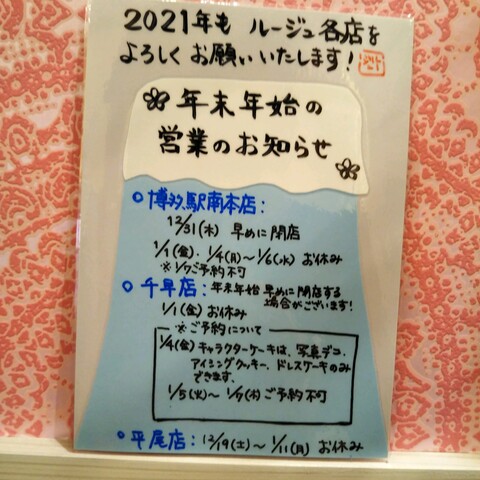 2021年も ルージュ各店を
よろしくお願いいたします!
年末年始の
営業のお知らせ
○博多駅南本店:
12/31(木) 早めに閉店
1/1(金)、1/4(月)~1/6(水) お休み
※1/7ご予約不可
○千早店:年末年始 早めに閉店する
場合がございます!
1/1(金) お休み
※ご予約について
1/4(金) キャラクターケーキは、写真デコ、
アイシングクッキー、ドレスケーキのみ
できます。
1/5(火)~1/7(木) ご予約不可
○平尾店:12/19(土)~1/11(月) お休み